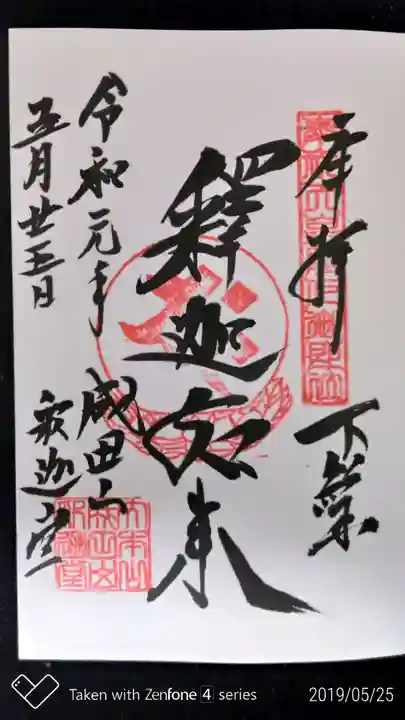 奉拝 下総
釋迦如来
令和元年 成田山
五月廿五日 釈迦堂
大本山
成田山
釈迦堂
Taken with Zenfone 4 series
2019/05/25